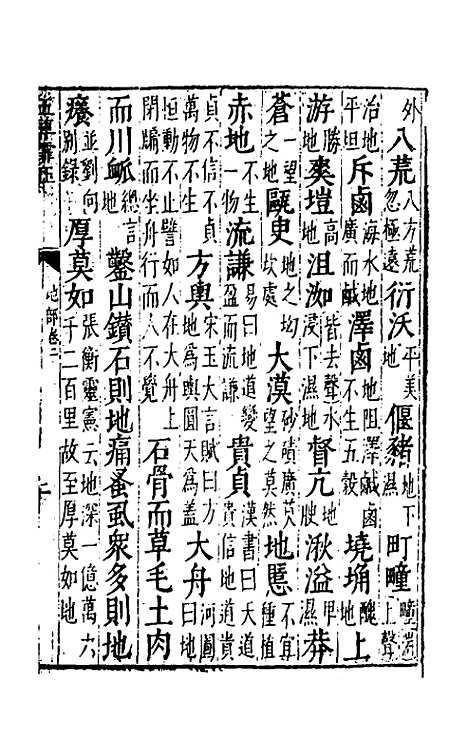 外八荒八方荒忽極邊地衍沃平美地偃豬地下濕町疃疃湍上聲
冶地平坦斥鹵海水地廣而鹹澤鹵地阻澤鹹鹵不生五穀墝埆醜地上
游勝地爽塏高地沮洳皆去聲水浸下濕地督亢地腴湫溢甲濕莽
蒼一望之地甌臾地之坳坎處大漠砂磧廣莫望之莫然地慝不宜種植
赤地不生一物流謙易曰地道變盈而流謙貴貞漢書曰天道貴信地道貴
貞不信不貞萬物不生方輿宋玉大言賦曰方地為輿圓天為蓋大舟河圖曰地
恒動不止譬如人在大舟上閉牖而坐舟行而人不覺石骨而草毛土肉
而川脈總言地鑿山鑽石則地痛蚤虱衆多則地
癢並劉向別錄厚莫如張衡靈憲云地深一億萬六千二百里故至厚莫如地
地部卷二